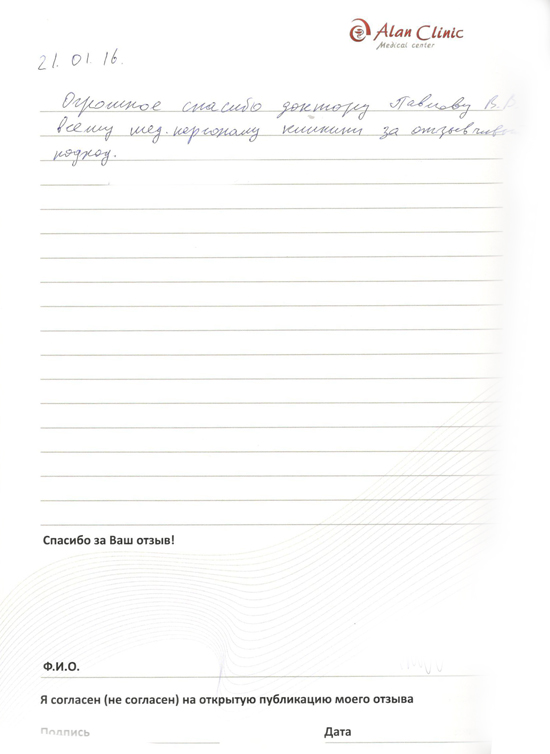 Alan Clinic
Medical center
21.01.16.
Огромное спасибо доктору Павлову В.В
всему мед. персоналу клиники за
подход.
Спасибо за Ваш отзыв!
Ф.И.О.
Я согласен (не согласен) на открытую публикацию моего отзыва
Подпись
Дата